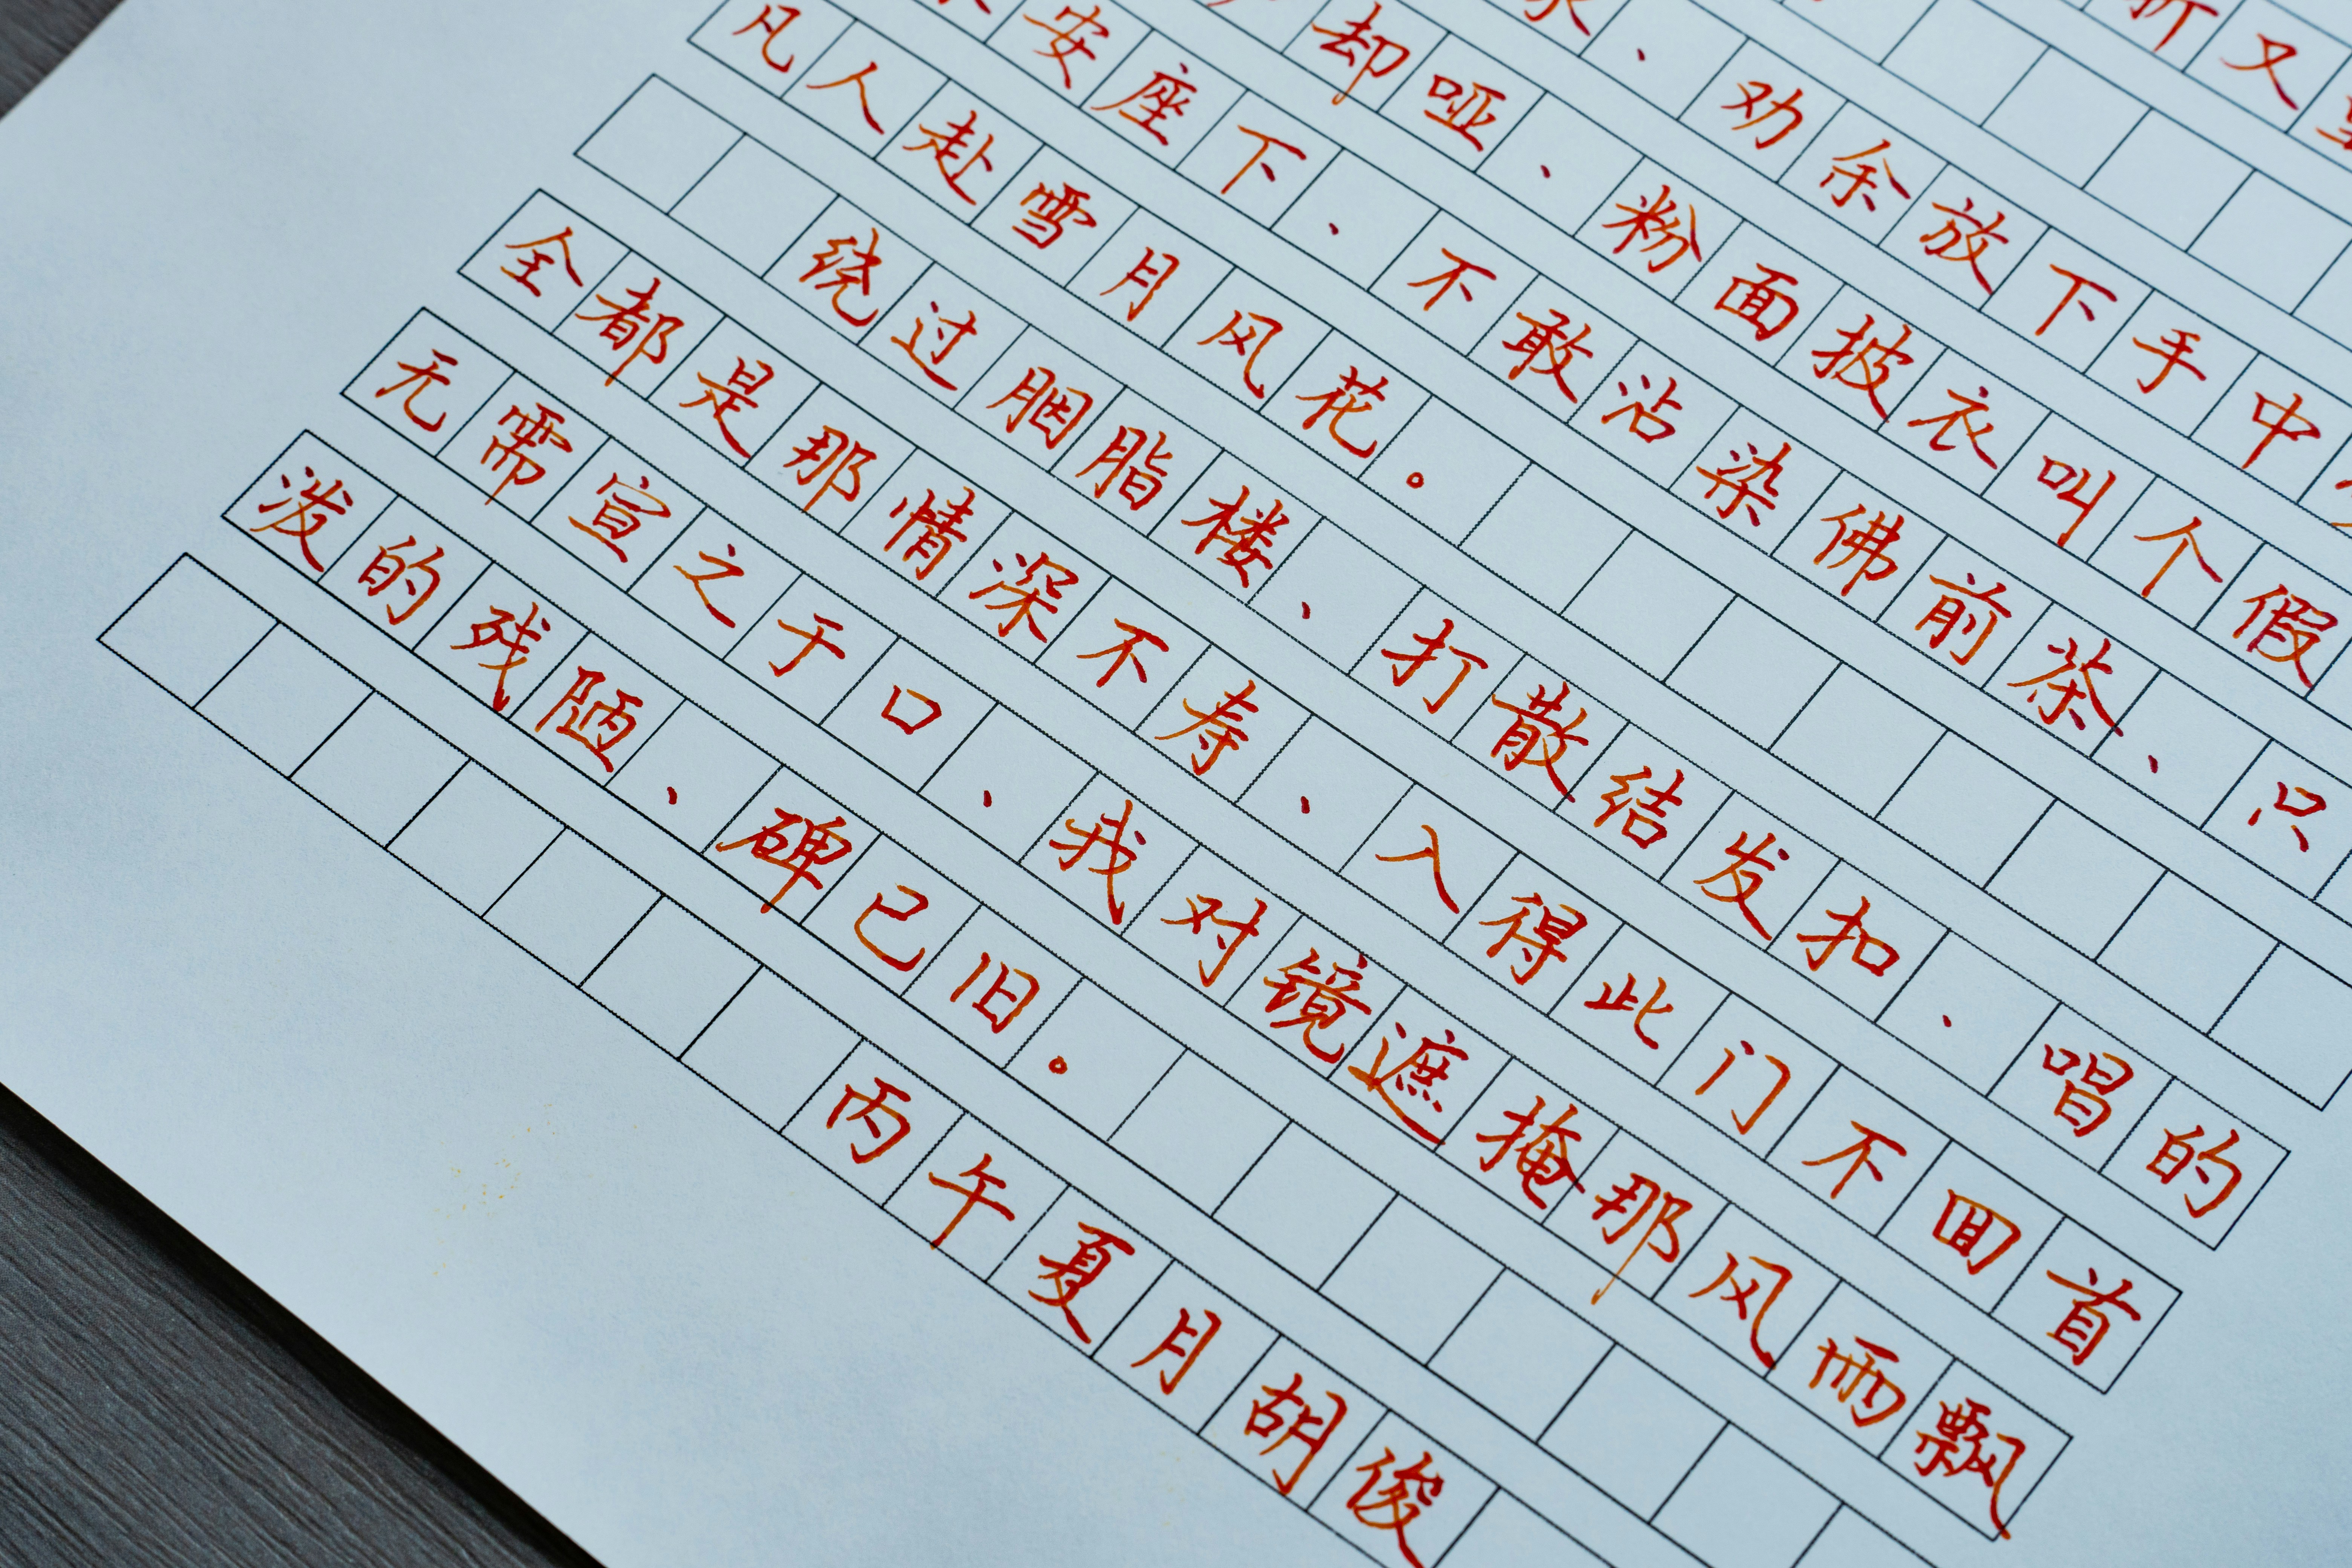 折又
、劝余放下手中
却哑、粉面披衣叫个假
安座下、不敢沾染佛前茶、只
凡人赴雪月风花。
绕过胭脂楼、打散结发扣、唱的
全都是那情深不寿、入得此门不回首
无需宣之于口、我对镜遮掩那风雨飘
泼的残陋、碑已旧。
丙午夏月胡俊